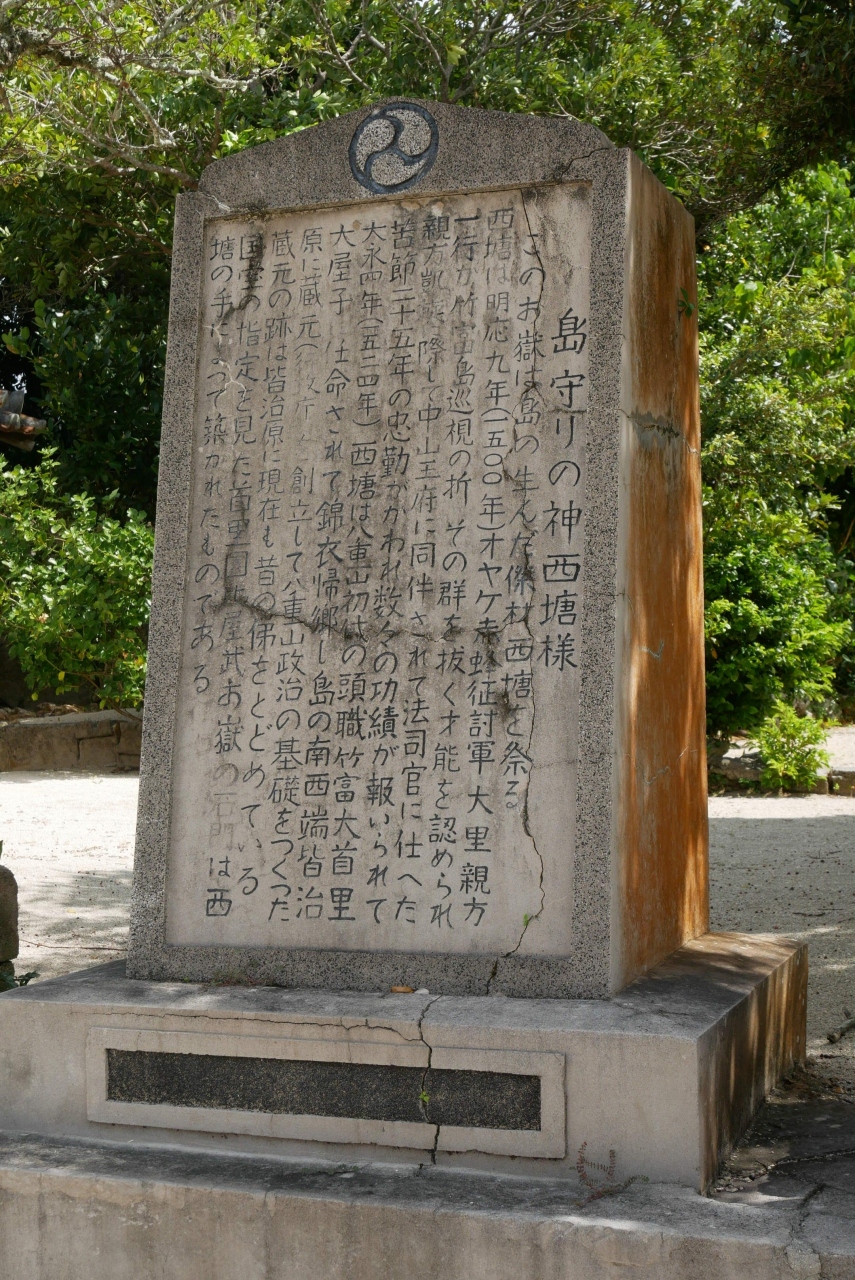 島守りの神西塘様
このお嶽は島の生んだ傑材西塘を祭る
西塘は明応九年(一五〇〇年)オヤケ赤蜂征討軍大里親方
一行が竹富島巡視の折その群を抜く才能を認められ
親方凱旋に際して中山王府に同伴されて法司官に仕へた
苦節二十五年の忠勤がかわれ数々の功績が報いられて
大永四年(一五二四年)西塘は八重山初代の頭職竹富大首里
大屋子 任命されて錦衣帰郷し島の南西端皆治
原に蔵元( 創立して八重山政治の基礎をつくった
蔵元の跡は皆治原に現在も昔の俤をとどめている
国宝の指定を見た首里 武お嶽の石門は西
塘の手によって築かれたものである